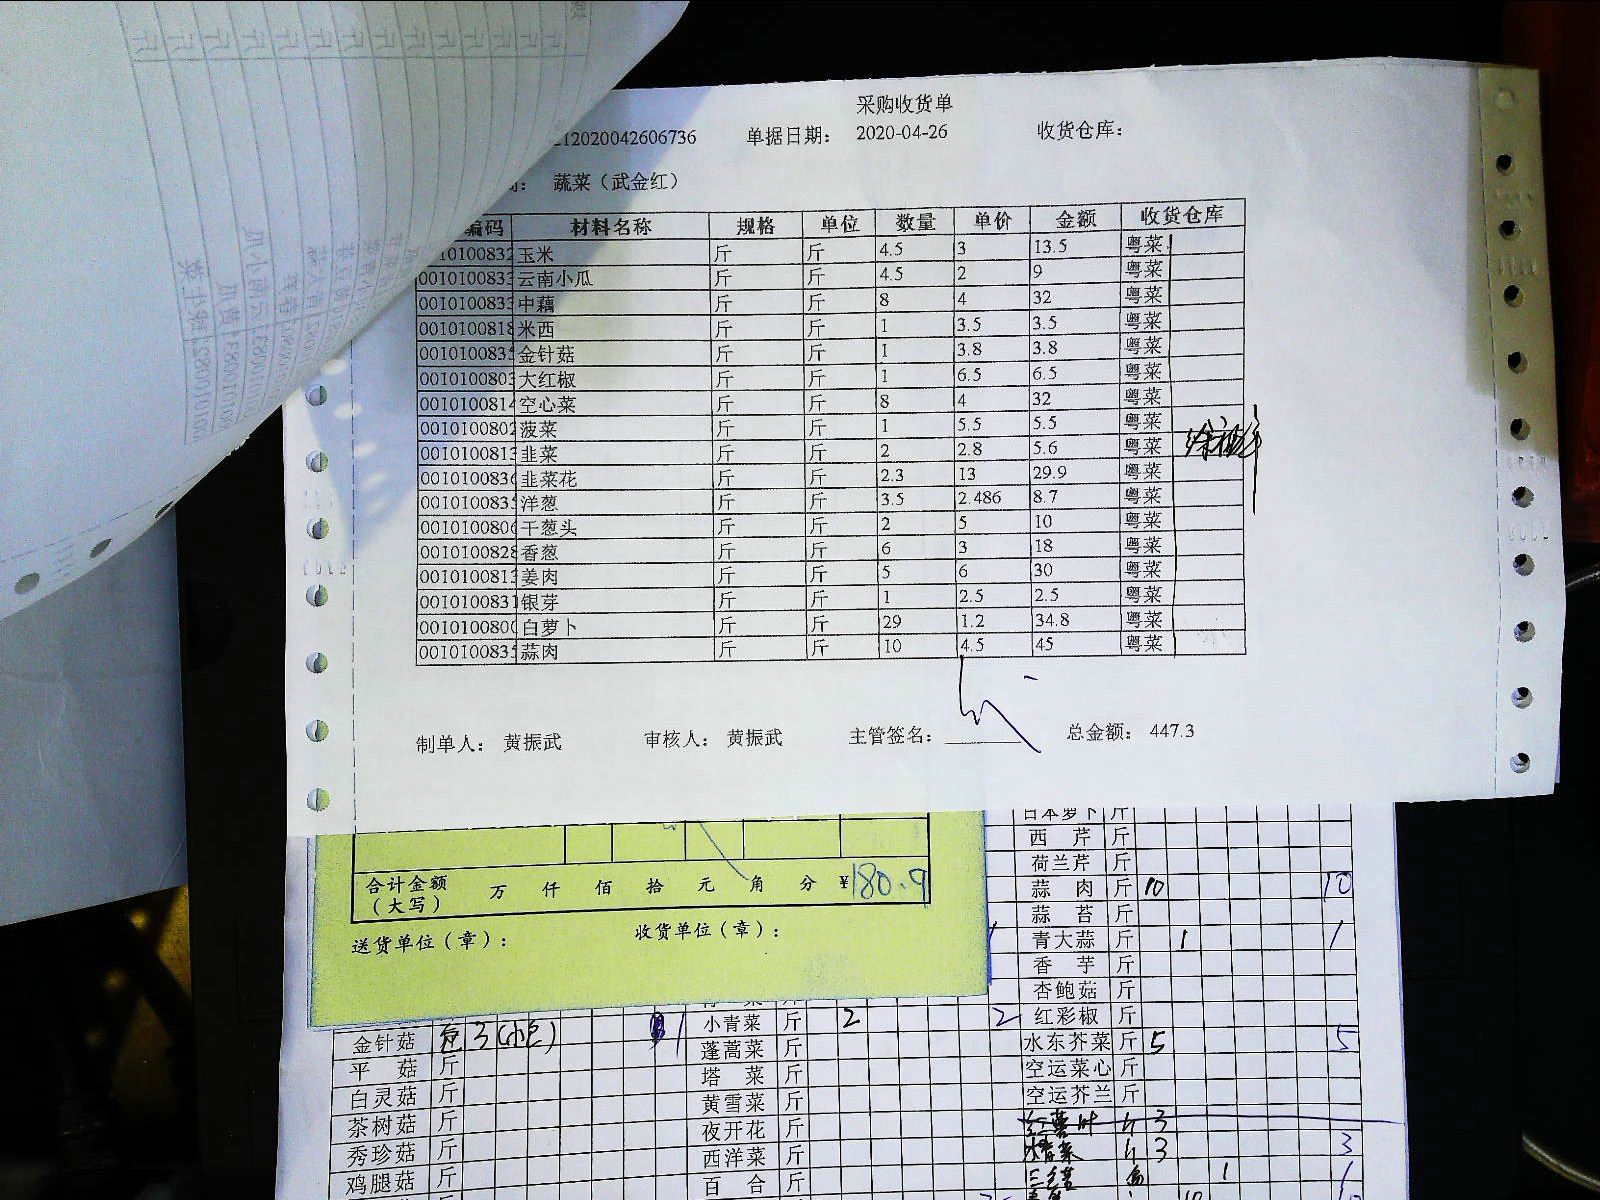 采购收货单
212020042606736 单据日期: 2020-04-26 收货仓库:
蔬菜（武金红）
编码 材料名称 规格 单位 数量 单价 金额 收货仓库
玉米 斤 斤 4.5 3 13.5 粤菜
云南小瓜 斤 斤 4.5 2 9 粤菜
中藕 斤 斤 8 4 32 粤菜
0010100818 米西 斤 斤 1 3.5 3.5 粤菜
001010083 金针菇 斤 斤 1 3.8 3.8 粤菜
001010080 大红椒 斤 斤 1 6.5 6.5 粤菜
0010100814 空心菜 斤 斤 8 4 32 粤菜
0010100802 菠菜 斤 斤 1 5.5 5.5 粤菜
001010081 韭菜 斤 斤 2 2.8 5.6 粤菜
001010083 韭菜花 斤 斤 2.3 13 29.9 粤菜
001010083 洋葱 斤 斤 3.5 2.486 8.7 粤菜
001010080 干葱头 斤 斤 2 5 10 粤菜
0010100828 香葱 斤 斤 6 3 18 粤菜
001010081 姜肉 斤 斤 5 6 30 粤菜
0010100831 银芽 斤 斤 1 2.5 2.5 粤菜
001010080 白萝卜 斤 斤 29 1.2 34.8 粤菜
001010083 蒜肉 斤 斤 10 4.5 45 粤菜
制单人: 黄振武 审核人: 黄振武 主管签名: 总金额: 447.3
合计金额（大写） 万 仟 佰 拾 元 角 分 ¥180.9
送货单位（章）: 收货单位（章）:
日本萝卜 斤
西芹 斤
荷兰芹 斤
蒜肉 斤 10 10
蒜苔 斤
青大蒜 斤 1 1
香芋 斤
杏鲍菇 斤
金针菇 包 3(小包) 1 小青菜 斤 2 2 红彩椒 斤
平菇 斤 蓬蒿菜 斤 水东芥菜 斤 5 5
白灵菇 斤 塔菜 斤 空运菜心 斤
茶树菇 斤 黄雪菜 斤 空运芥兰 斤
秀珍菇 斤 夜开花 斤 红薯叶 斤 3
鸡腿菇 斤 西洋菜 斤 3 3
百合 斤 1 1